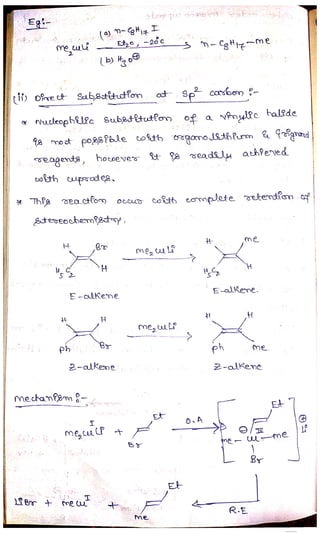 Eg:-
(a) n-C8H17 I
me2cuLi Et2O, -20°c n-C8H17-me
(b) H3O⊕
(ii) Direct Substitution at Sp² carbon :-
* nucleophilic substitution of a vinylic halide
is not possible with organolithium & grignard
reagents, however it is readily achieved
with cuprates.
* This reaction occur with complete retention of
stereochemistry.
H Br me2cuLi H me
H5C2 H H5C2 H
E-alkene E-alkene.
H H me2cuLi H H
ph Br ph Me
Z-alkene Z-alkene
mechanism :-
Et
me2cuLi + O.A
Br
Et
⊖ III
me - cu - me
Br
⊕
Li
LiBr + mecuI + Et
me R.E